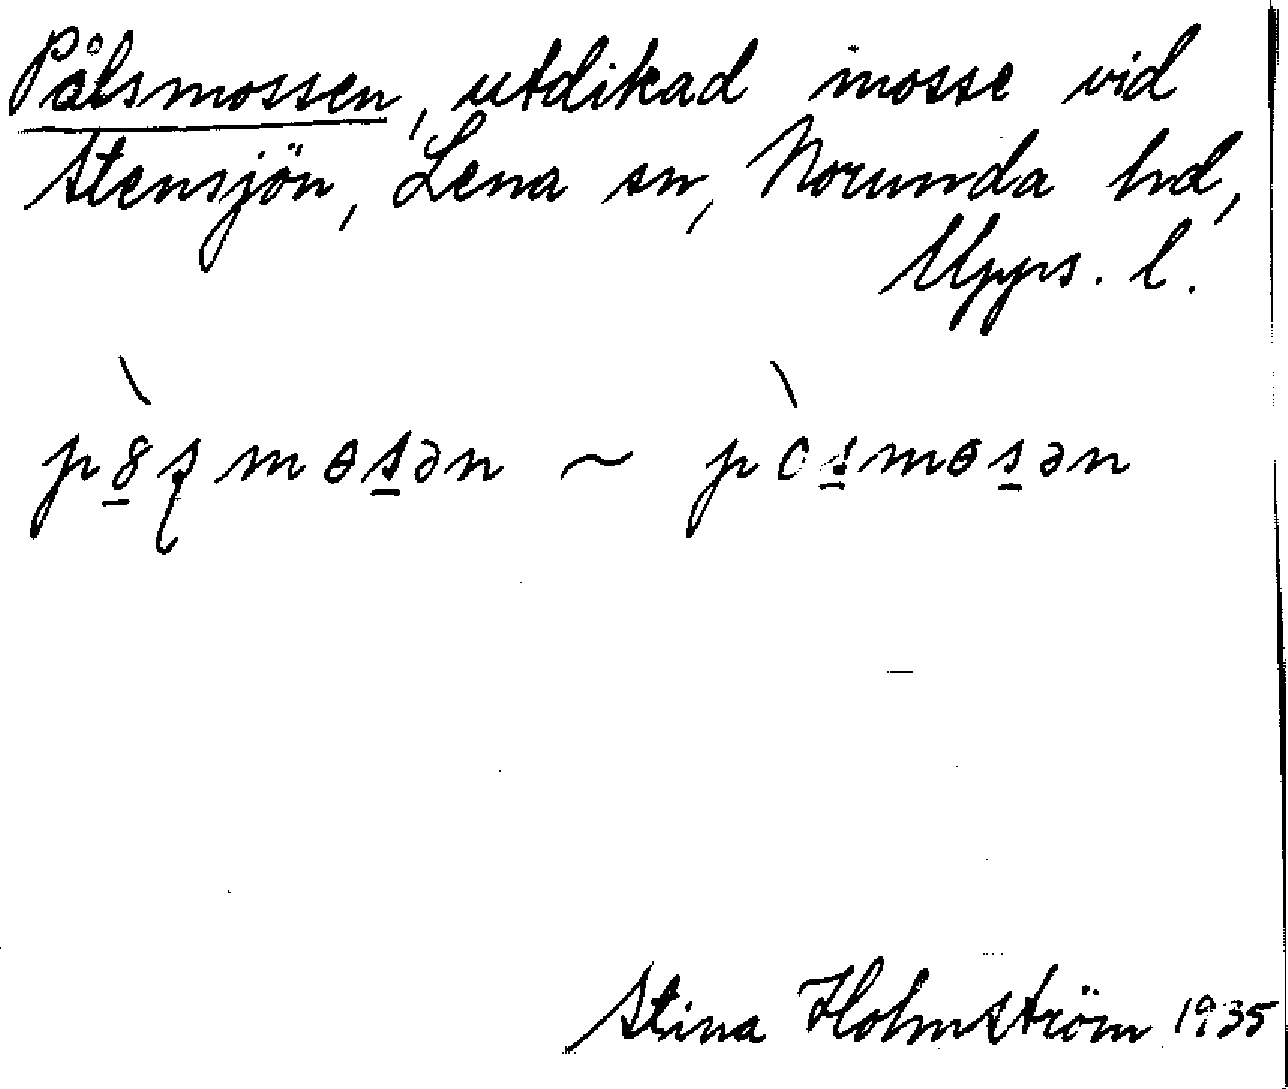 Pålsmossen, utdikad mosse vid
Stensjön, Lena sn, Norunda hd,
Upps. l.
Stina Holmström 1935